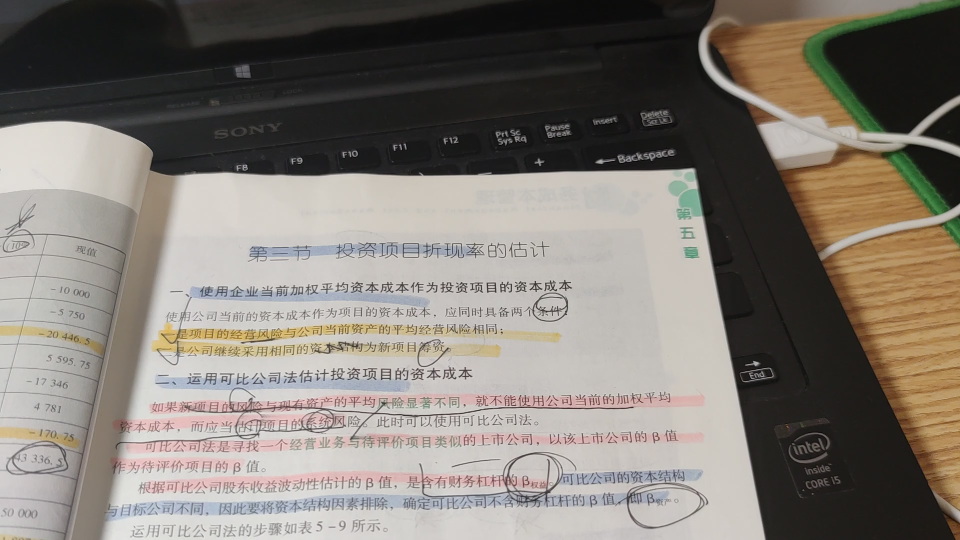 SONY
F8
F9
F10
F11
F12
Prt Sc
Sys Rq
Pause
Break
Insert
Delete
Scr Lk
+
Backspace
End
intel
inside
CORE i5
现值
-10 000
-5 750
-20 446.5
5 595.75
-17 346
4 781
-170.75
-43 336.5
50 000
第五章
第三节 投资项目折现率的估计
一、使用企业当前加权平均资本成本作为投资项目的资本成本
使用公司当前的资本成本作为项目的资本成本，应同时具备两个条件：
一是项目的经营风险与公司当前资产的平均经营风险相同；
二是公司继续采用相同的资本结构为新项目筹资。
二、运用可比公司法估计投资项目的资本成本
如果新项目的风险与现有资产的平均风险显著不同，就不能使用公司当前的加权平均
资本成本，而应当估计项目的系统风险，此时可以使用可比公司法。
可比公司法是寻找一个经营业务与待评价项目类似的上市公司，以该上市公司的 β 值
作为待评价项目的 β 值。
根据可比公司股东收益波动性估计的 β 值，是含有财务杠杆的 β权益，可比公司的资本结构
与目标公司不同，因此要将资本结构因素排除，确定可比公司不含财务杠杆的 β 值，即 β资产。
运用可比公司法的步骤如表 5-9 所示。